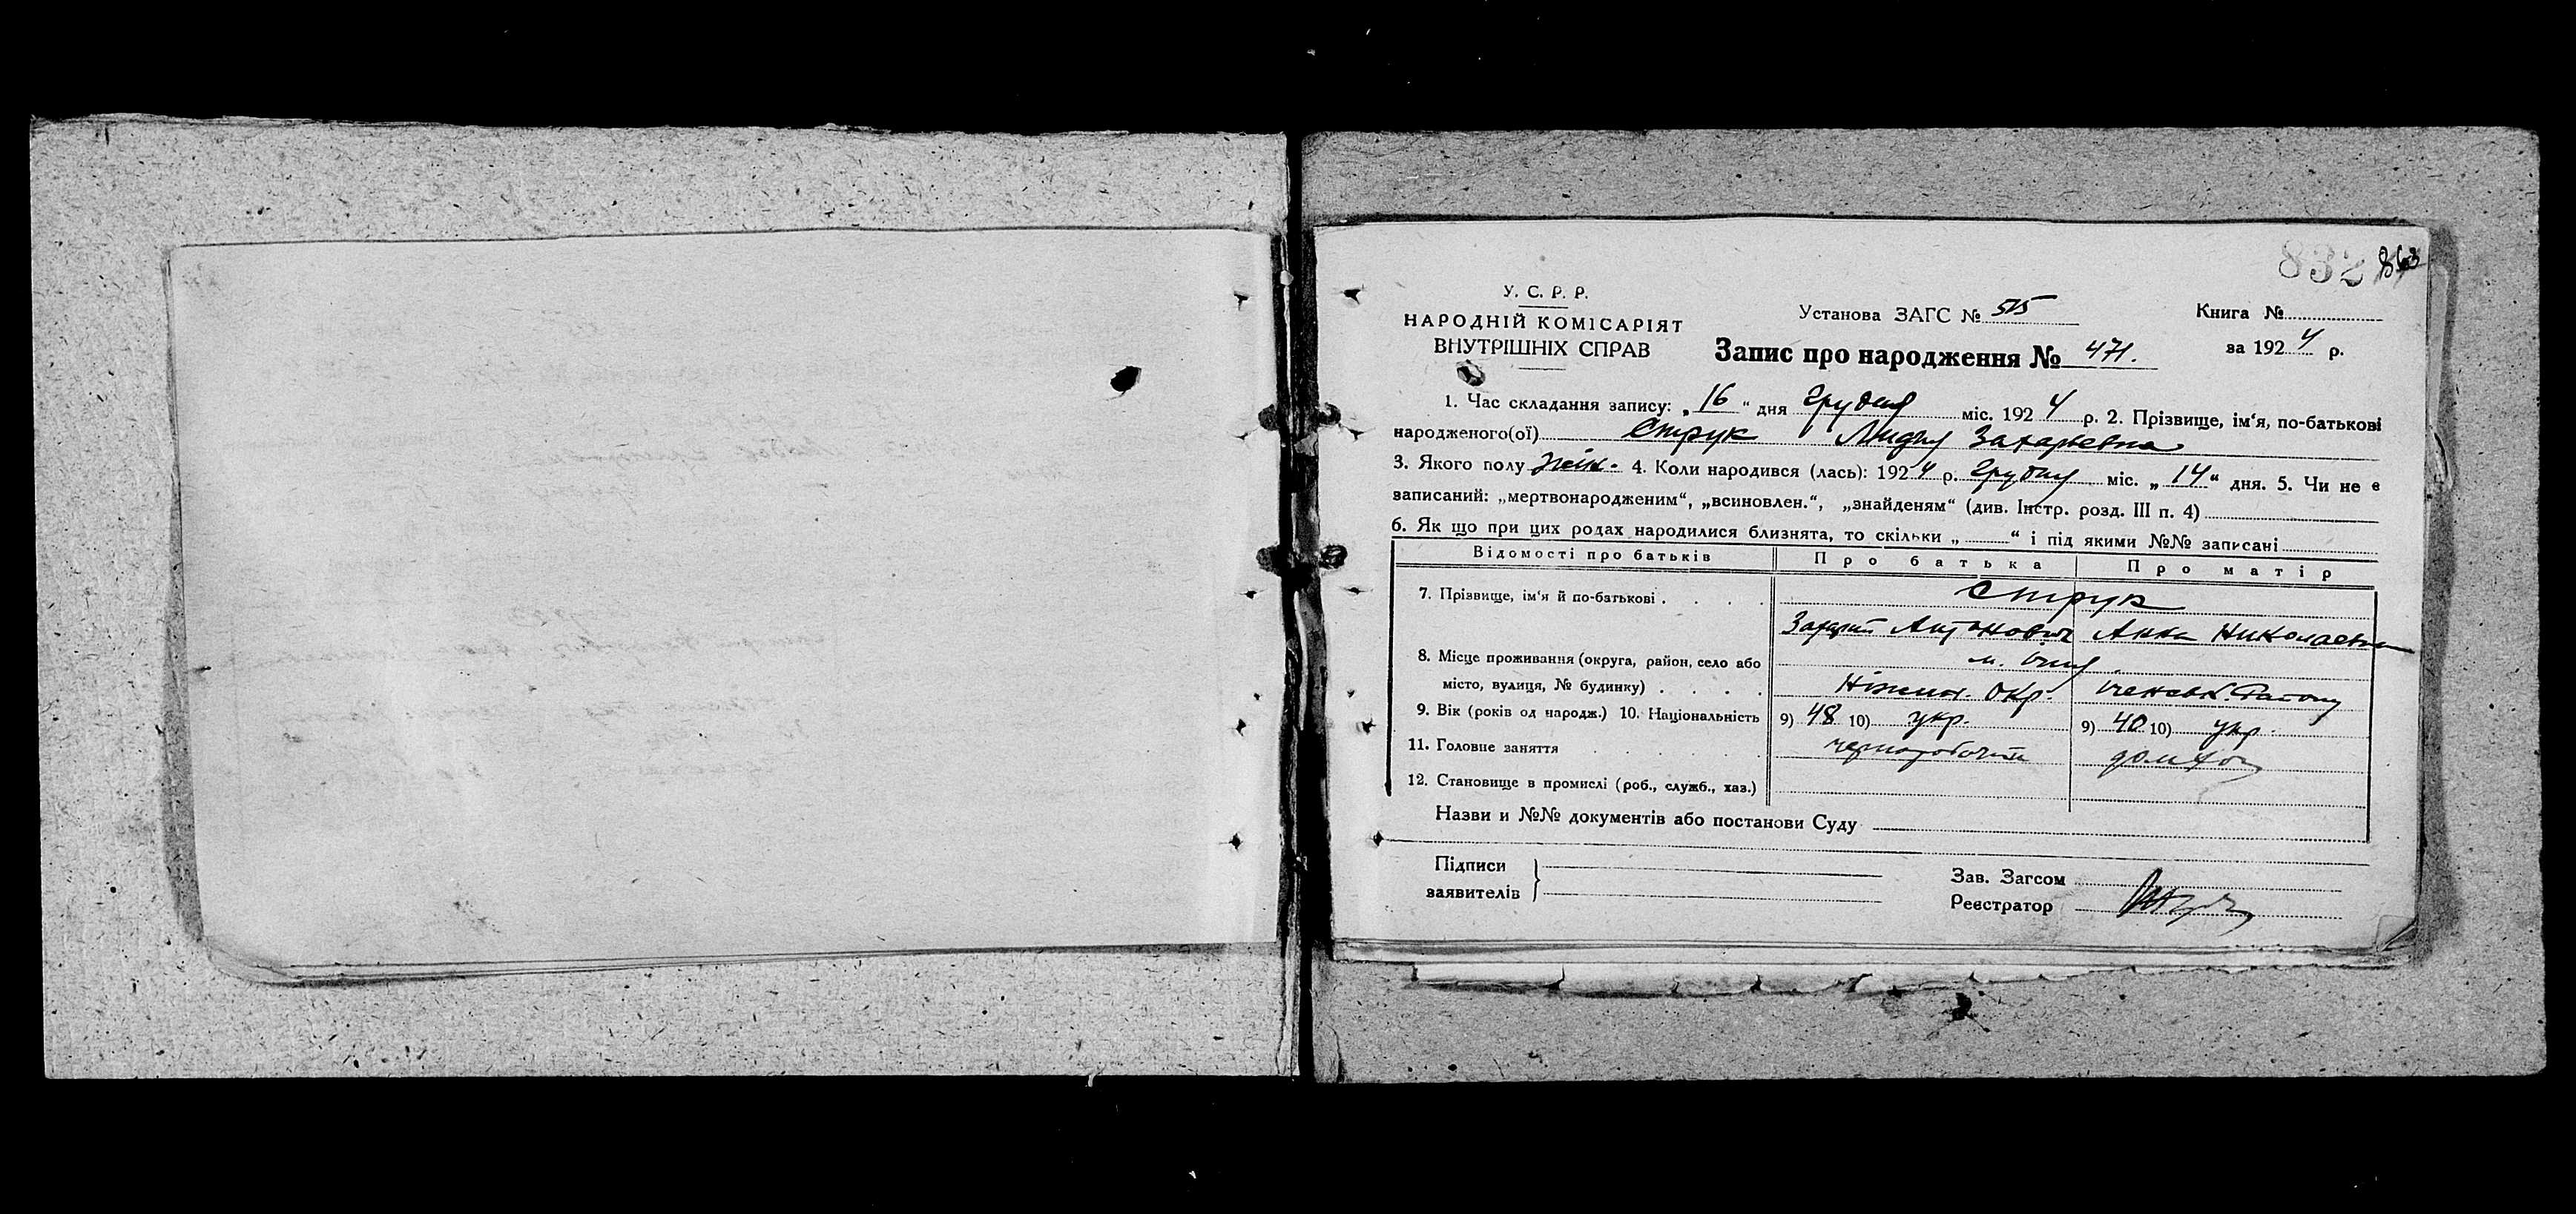 832 863
У. С. Р. Р.
НАРОДНІЙ КОМІСАРІЯТ
ВНУТРІШНІХ СПРАВ
Установа ЗАГС № 515
Книга №
Запис про народження № 471.
за 1924 р.
1. Час складання запису: „16“ дня Грудня міс. 1924 р. 2. Прізвище, ім‘я, по-батькові
народженого(ої) Струк Лидия Захарьевна
3. Якого полу жін. 4. Коли народився (лась): 1924 р. Грудня міс. „14“ дня. 5. Чи не є
записаний: „мертвонародженим“, „всиновлен.“, „знайденям“ (див. Інстр. розд. III п. 4)
6. Як що при цих родах народилися близнята, то скільки „ “ і під якими №№ записані
Відомості про батьків Про батька Про матір
7. Прізвище, ім‘я й по-батькові . . . . Струк
Захарий Антонович Анна Николаевна
8. Місце проживання (округа, район, село або м.
місто, вулиця, № будинку) . . . . Ніжин. Окр. Іченськ. Району
9. Вік (років од народж.) 10. Національність 9) 48 10) укр. 9) 40 10) укр.
11. Головне заняття . . . . . чернорабочий
12. Становище в промислі (роб., служб., хаз.)
Назви и №№ документів або постанови Суду
Підписи
заявителів
Зав. Загсом
Реєстратор